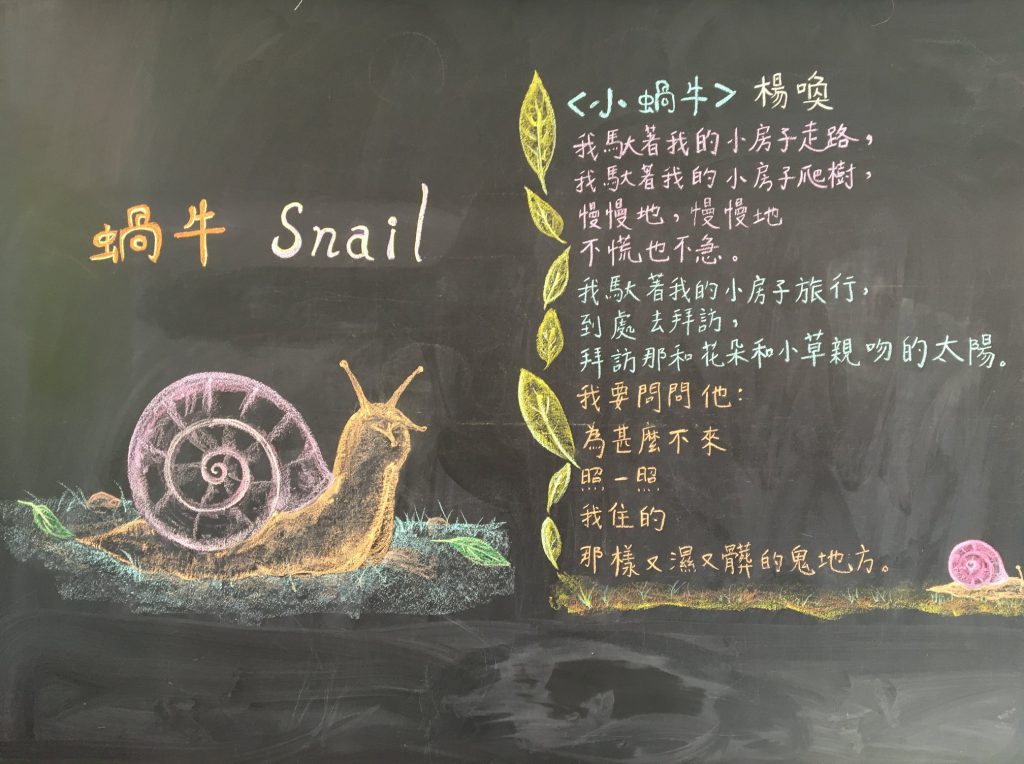 蝸牛 Snail
<小蝸牛> 楊喚
我馱著我的小房子走路，
我馱著我的小房子爬樹，
慢慢地，慢慢地
不慌也不急。
我馱著我的小房子旅行，
到處去拜訪，
拜訪那和花朵和小草親吻的太陽。
我要問問他：
為甚麼不來
照一照
我住的
那樣又濕又髒的鬼地方。